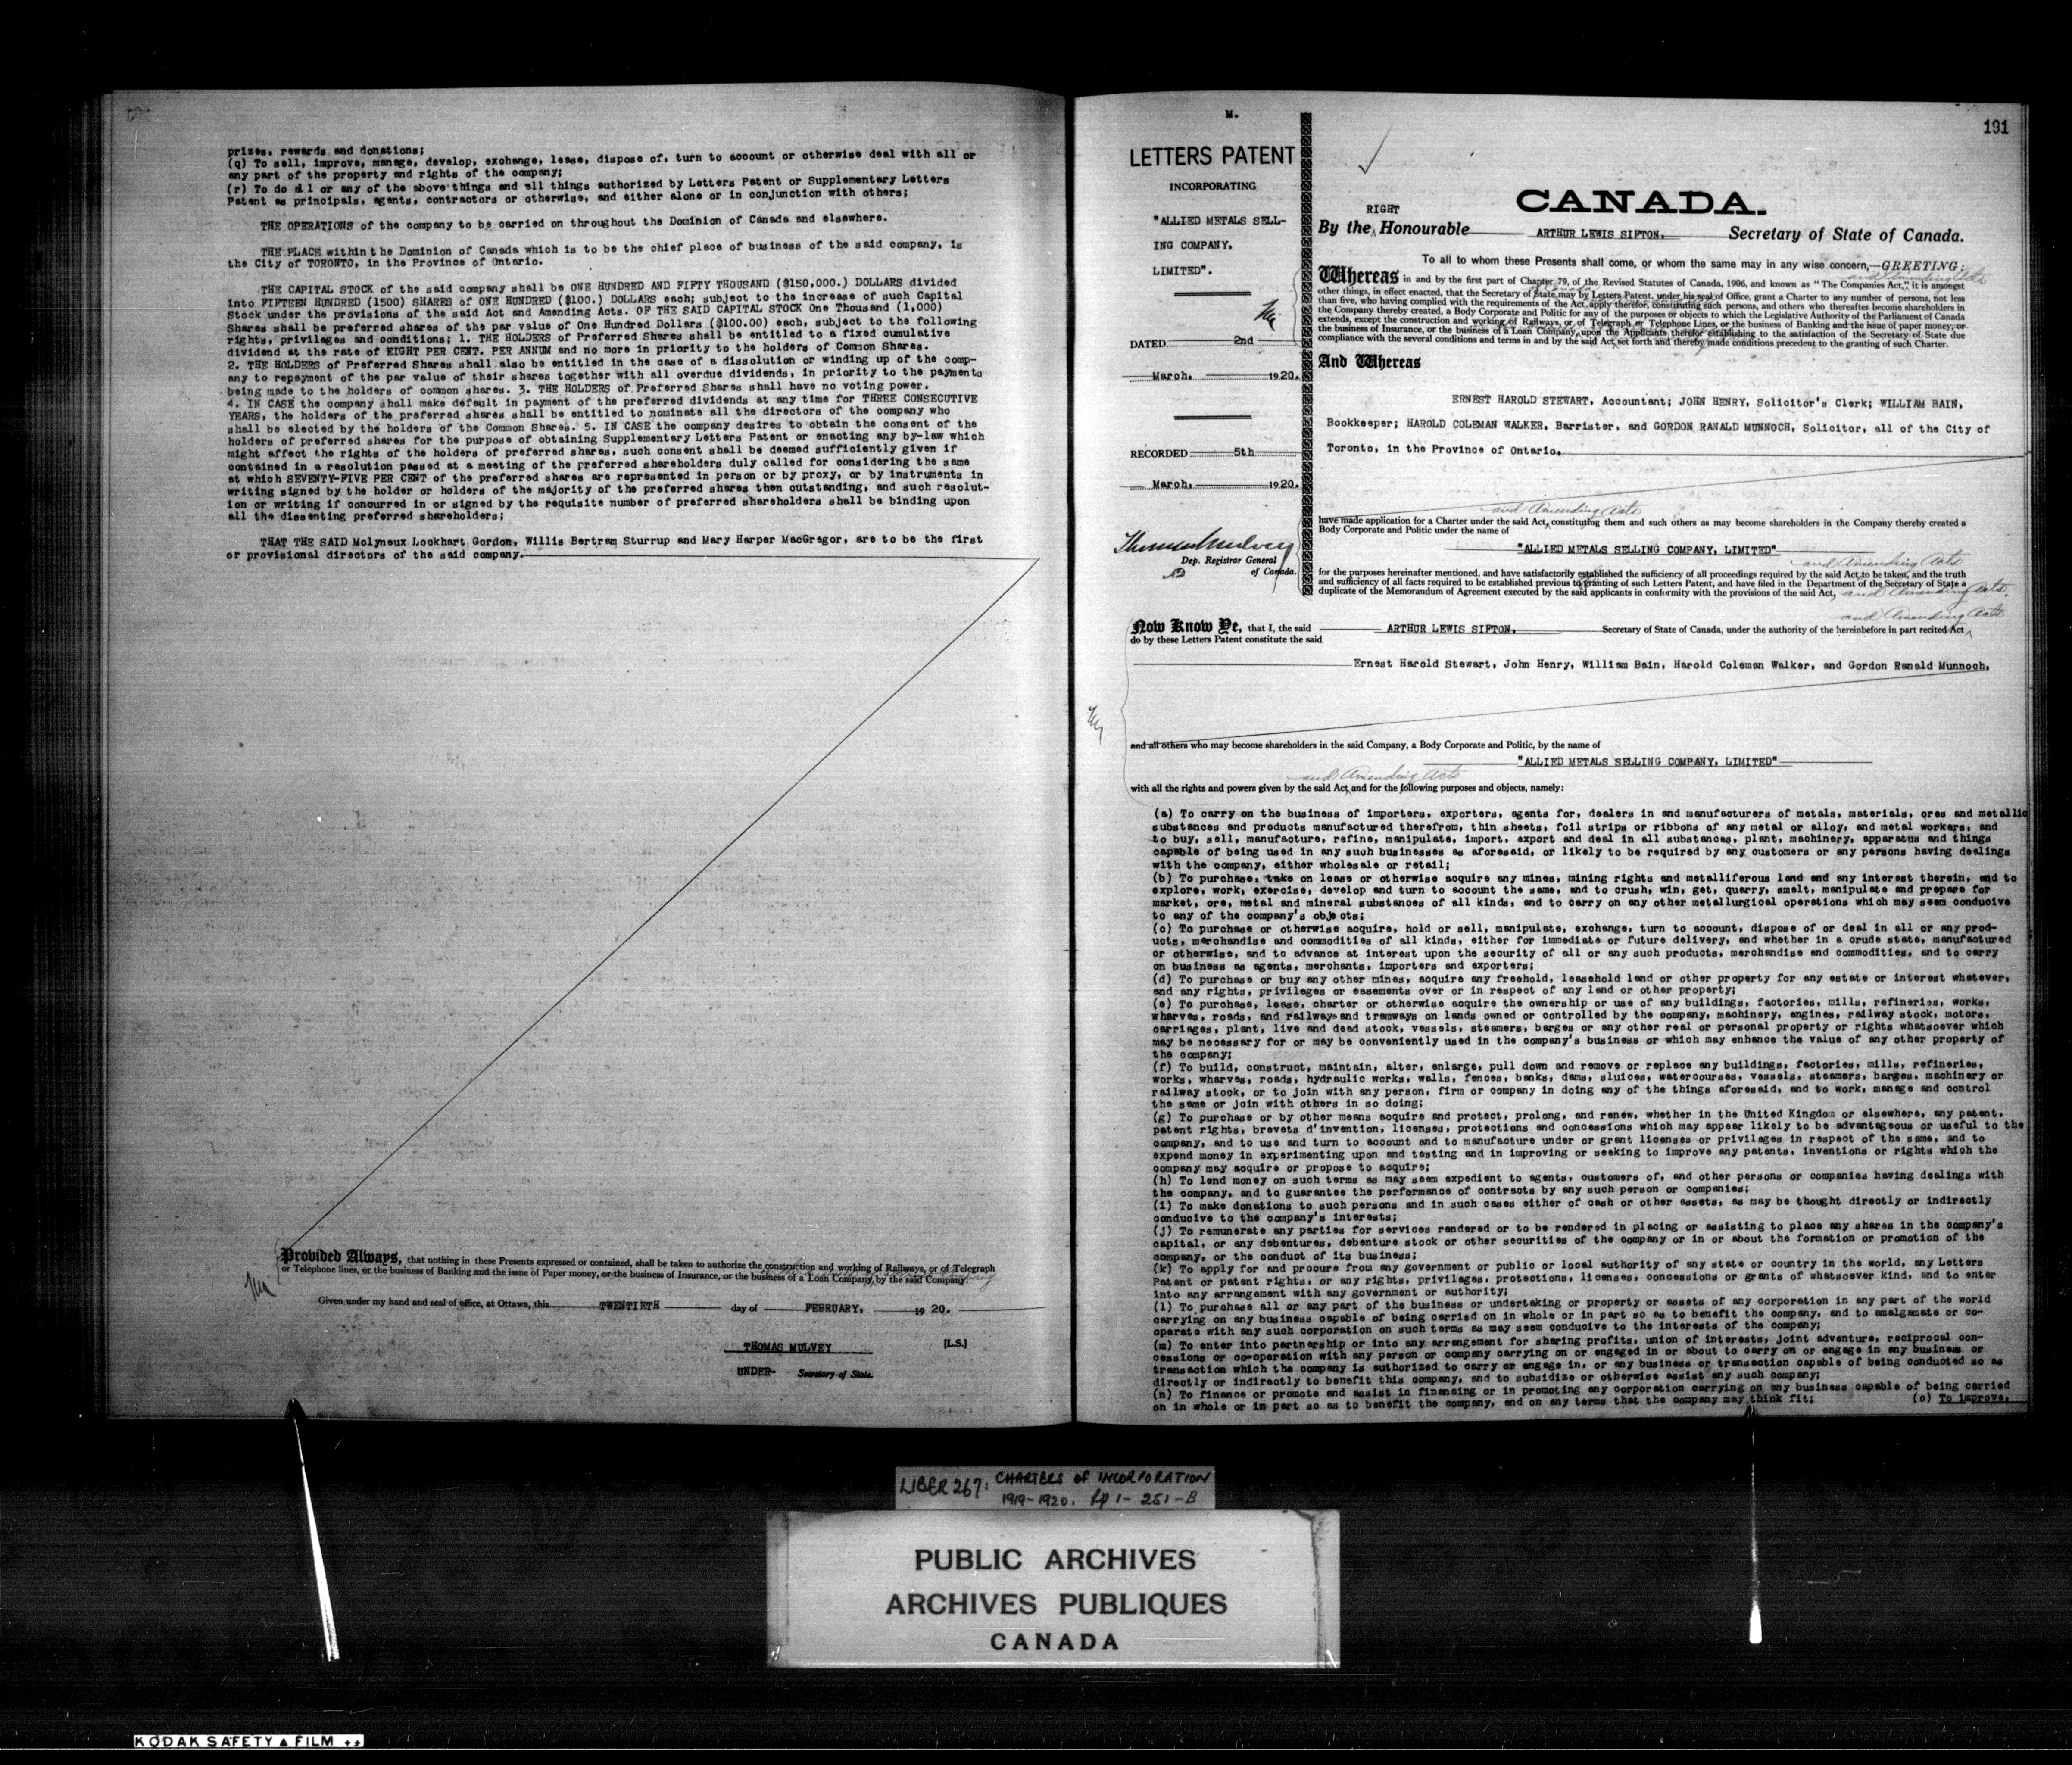 prizes, rewards and donations;
(q) To sell, improve, manage, develop, exchange, lease, dispose of, turn to account or otherwise deal with all or
any part of the property and rights of the company;
(r) To do all or any of the above things and all things authorized by Letters Patent or Supplementary Letters
Patent as principals, agents, contractors or otherwise, and either alone or in conjunction with others;
THE OPERATIONS of the company to be carried on throughout the Dominion of Canada and elsewhere.
THE PLACE within the Dominion of Canada which is to be the chief place of business of the said company, is
the City of TORONTO, in the Province of Ontario.
THE CAPITAL STOCK of the said company shall be ONE HUNDRED AND FIFTY THOUSAND ($150,000.) DOLLARS divided
into FIFTEEN HUNDRED (1500) SHARES of ONE HUNDRED ($100.) DOLLARS each; subject to the increase of such Capital
Stock under the provisions of the said Act and Amending Acts. OF THE SAID CAPITAL STOCK One Thousand (1,000)
Shares shall be preferred shares of the par value of One Hundred Dollars ($100.00) each, subject to the following
rights, privileges and conditions; 1. THE HOLDERS of Preferred Shares shall be entitled to a fixed cumulative
dividend at the rate of EIGHT PER CENT. PER ANNUM and no more in priority to the holders of Common Shares.
2. THE HOLDERS of Preferred Shares shall also be entitled in the case of a dissolution or winding up of the comp-
any to repayment of the par value of their shares together with all overdue dividends, in priority to the payments
being made to the holders of common shares. 3. THE HOLDERS of Preferred Shares shall have no voting power.
4. IN CASE the company shall make default in payment of the preferred dividends at any time for THREE CONSECUTIVE
YEARS, the holders of the preferred shares shall be entitled to nominate all the directors of the company who
shall be elected by the holders of the Common Shares. 5. IN CASE the company desires to obtain the consent of the
holders of preferred shares for the purpose of obtaining Supplementary Letters Patent or enacting any by-law which
might affect the rights of the holders of preferred shares, such consent shall be deemed sufficiently given if
contained in a resolution passed at a meeting of the preferred shareholders duly called for considering the same
at which SEVENTY-FIVE PER CENT of the preferred shares are represented in person or by proxy, or by instruments in
writing signed by the holder or holders of the majority of the preferred shares then outstanding, and such resolut-
ion or writing if concurred in or signed by the requisite number of preferred shareholders shall be binding upon
all the dissenting preferred shareholders;
THAT THE SAID Molyneux Lockhart Gordon, Willis Bertram Sturrup and Mary Harper MacGregor, are to be the first
or provisional directors of the said company.
Provided Always, that nothing in these Presents expressed or contained, shall be taken to authorize the construction and working of Railways, or of Telegraph
or Telephone lines, or the business of Banking and the issue of Paper money, or the business of Insurance, or the business of a Loan Company, by the said Company.
Given under my hand and seal of office, at Ottawa, this TWENTIETH day of FEBRUARY, 1920.
THOMAS MULVEY [L.S.]
UNDER- Secretary of State.
M.
LETTERS PATENT
INCORPORATING
"ALLIED METALS SELL-
ING COMPANY,
LIMITED".
DATED 2nd
March, 1920.
RECORDED 5th
March, 1920.
Thomas Mulvey
Dep. Registrar General
of Canada.
191
CANADA.
RIGHT
By the Honourable ARTHUR LEWIS SIFTON, Secretary of State of Canada.
To all to whom these Presents shall come, or whom the same may in any wise concern,—GREETING:
and Amending Acts
Whereas in and by the first part of Chapter 79, of the Revised Statutes of Canada, 1906, and known as "The Companies Act," it is amongst
other things, in effect enacted, that the Secretary of State may by Letters Patent, under his seal of Office, grant a Charter to any number of persons, not less
than five, who having complied with the requirements of the Act apply therefor, constituting such persons, and others who thereafter become shareholders in
the Company thereby created, a Body Corporate and Politic for any of the purposes or objects to which the Legislative Authority of the Parliament of Canada
extends, except the construction and working of Railways, or of Telegraph or Telephone Lines, or the business of Banking and the issue of paper money, or
the business of Insurance, or the business of a Loan Company, upon the Applicants therefor establishing to the satisfaction of the Secretary of State due
compliance with the several conditions and terms in and by the said Act set forth and thereby made conditions precedent to the granting of such Charter.
And Whereas
ERNEST HAROLD STEWART, Accountant; JOHN HENRY, Solicitor's Clerk; WILLIAM BAIN,
Bookkeeper; HAROLD COLEMAN WALKER, Barrister, and GORDON RANALD MUNNOCH, Solicitor, all of the City of
Toronto, in the Province of Ontario,
and Amending Acts
have made application for a Charter under the said Act, constituting them and such others as may become shareholders in the Company thereby created a
Body Corporate and Politic under the name of
"ALLIED METALS SELLING COMPANY, LIMITED"
and Amending Acts
for the purposes hereinafter mentioned, and have satisfactorily established the sufficiency of all proceedings required by the said Act to be taken, and the truth
and sufficiency of all facts required to be established previous to granting of such Letters Patent, and have filed in the Department of the Secretary of State a
duplicate of the Memorandum of Agreement executed by the said applicants in conformity with the provisions of the said Act, and Amending Acts.
and Amending Acts
Now Know Ye, that I, the said ARTHUR LEWIS SIFTON, Secretary of State of Canada, under the authority of the hereinbefore in part recited Act
do by these Letters Patent constitute the said
Ernest Harold Stewart, John Henry, William Bain, Harold Coleman Walker, and Gordon Ranald Munnoch,
and all others who may become shareholders in the said Company, a Body Corporate and Politic, by the name of
"ALLIED METALS SELLING COMPANY, LIMITED"
and Amending Acts
with all the rights and powers given by the said Act and for the following purposes and objects, namely:
(a) To carry on the business of importers, exporters, agents for, dealers in and manufacturers of metals, materials, ores and metallic
substances and products manufactured therefrom, thin sheets, foil strips or ribbons of any metal or alloy, and metal workers, and
to buy, sell, manufacture, refine, manipulate, import, export and deal in all substances, plant, machinery, apparatus and things
capable of being used in any such businesses as aforesaid, or likely to be required by any customers or any persons having dealings
with the company, either wholesale or retail;
(b) To purchase, take on lease or otherwise acquire any mines, mining rights and metalliferous land and any interest therein, and to
explore, work, exercise, develop and turn to account the same, and to crush, win, get, quarry, smelt, manipulate and prepare for
market, ore, metal and mineral substances of all kinds, and to carry on any other metallurgical operations which may seem conducive
to any of the company's objects;
(c) To purchase or otherwise acquire, hold or sell, manipulate, exchange, turn to account, dispose of or deal in all or any prod-
ucts, merchandise and commodities of all kinds, either for immediate or future delivery, and whether in a crude state, manufactured
or otherwise, and to advance at interest upon the security of all or any such products, merchandise and commodities, and to carry
on business as agents, merchants, importers and exporters;
(d) To purchase or buy any other mines, acquire any freehold, leasehold land or other property for any estate or interest whatever,
and any rights, privileges or easements over or in respect of any land or other property;
(e) To purchase, lease, charter or otherwise acquire the ownership or use of any buildings, factories, mills, refineries, works,
wharves, roads, and railways and tramways on lands owned or controlled by the company, machinery, engines, railway stock, motors,
carriages, plant, live and dead stock, vessels, steamers, barges or any other real or personal property or rights whatsoever which
may be necessary for or may be conveniently used in the company's business or which may enhance the value of any other property of
the company;
(f) To build, construct, maintain, alter, enlarge, pull down and remove or replace any buildings, factories, mills, refineries,
works, wharves, roads, hydraulic works, walls, fences, banks, dams, sluices, watercourses, vessels, steamers, barges, machinery or
railway stock, or to join with any person, firm or company in doing any of the things aforesaid, and to work, manage and control
the same or join with others in so doing;
(g) To purchase or by other means acquire and protect, prolong, and renew, whether in the United Kingdom or elsewhere, any patent,
patent rights, brevets d'invention, licenses, protections and concessions which may appear likely to be advantageous or useful to the
company, and to use and turn to account and to manufacture under or grant licenses or privilages in respect of the same, and to
expend money in experimenting upon and testing and in improving or seeking to improve any patents, inventions or rights which the
company may acquire or propose to acquire;
(h) To lend money on such terms as may seem expedient to agents, customers of, and other persons or companies having dealings with
the company, and to guarantee the performance of contracts by any such person or companies;
(i) To make donations to such persons and in such cases either of cash or other assets, as may be thought directly or indirectly
conducive to the company's interests;
(j) To remunerate any parties for services rendered or to be rendered in placing or assisting to place any shares in the company's
capital, or any debentures, debenture stock or other securities of the company or in or about the formation or promotion of the
company, or the conduct of its business;
(k) To apply for and procure from any government or public or local authority of any state or country in the world, any Letters
Patent or patent rights, or any rights, privileges, protections, licenses, concessions or grants of whatsoever kind, and to enter
into any arrangement with any government or authority;
(l) To purchase all or any part of the business or undertaking or property or assets of any corporation in any part of the world
carrying on any business capable of being carried on in whole or in part so as to benefit the company, and to amalgamate or co-
operate with any such corporation on such terms as may seem conducive to the interests of the company;
(m) To enter into partnership or into any arrangement for sharing profits, union of interests, joint adventure, reciprocal con-
cessions or co-operation with any person or company carrying on or engaged in or about to carry on or engage in any business or
transaction which the company is authorized to carry or engage in, or any business or transaction capable of being conducted so as
directly or indirectly to benefit this company, and to subsidize or otherwise assist any such company;
(n) To finance or promote and assist in financing or in promoting any corporation carrying on any business capable of being carried
on in whole or in part so as to benefit the company, and on any terms that the company may think fit; (o) To improve,
LIBER 267: CHARTERS OF INCORPORATION
1919-1920. pp 1-251-B
PUBLIC ARCHIVES
ARCHIVES PUBLIQUES
CANADA
KODAK SAFETY FILM